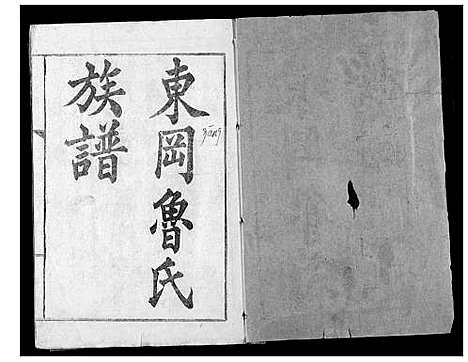 東岡魯氏
族譜
gāng